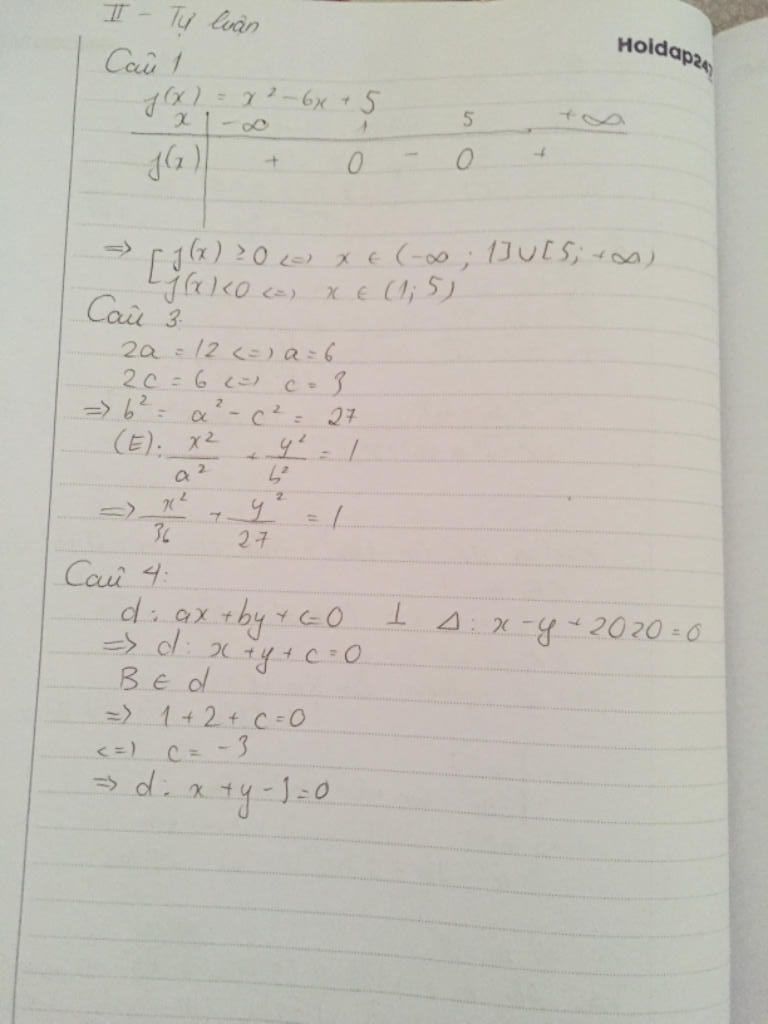 II - Tự luận
Hoidap247
Câu 1
f(x) = x² - 6x + 5
x -∞ 1 5 +∞
f(x) + 0 - 0 +
=> [ f(x) ≥ 0 <=> x ∈ (-∞ ; 1] ∪ [5; +∞)
f(x) < 0 <=> x ∈ (1; 5)
Câu 3:
2a = 12 <=> a = 6
2c = 6 <=> c = 3
=> b² = a² - c² = 27
(E): x²/a² + y²/b² = 1
=> x²/36 + y²/27 = 1
Câu 4:
d: ax + by + c = 0 ⊥ Δ: x - y + 2020 = 0
=> d: x + y + c = 0
B ∈ d
=> 1 + 2 + c = 0
<=> c = -3
=> d: x + y - 3 = 0